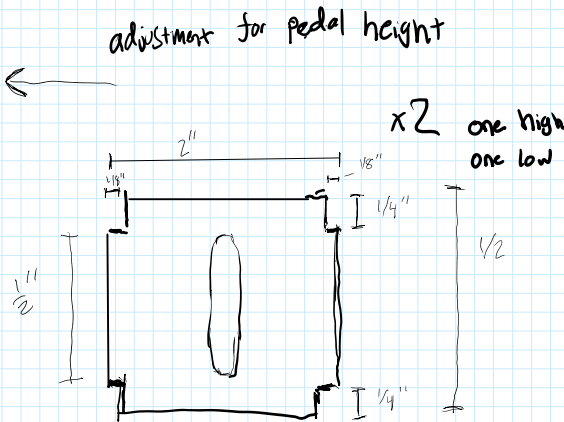 adjustment for pedal height
x2 one high
one low
2"
1/8"
1/8"
1/4"
1/2"
1/2
1/4"